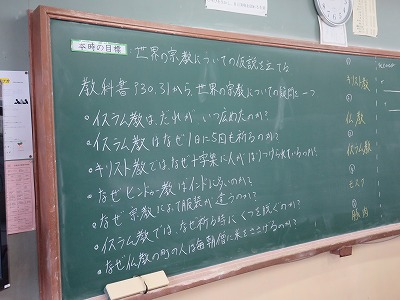 本時の目標
世界の宗教についての仮説を立てる
教科書P30.31から、世界の宗教についての疑問を一つ
・イスラム教は、だれが、いつ広めたのか?
・イスラム教はなぜ1日に5回も祈るのか?
・キリスト教ではなぜ十字架に人がはりつけられているのか?
・なぜヒンドゥー教はインドに多いのか?
・なぜ宗教によって服装が違うのか?
・イスラム教では、なぜ祈る時にくつを脱ぐのか?
・なぜ仏教の町の人は毎朝僧に米をささげるのか?
キリスト教
仏教
イスラム教
モスク
豚肉